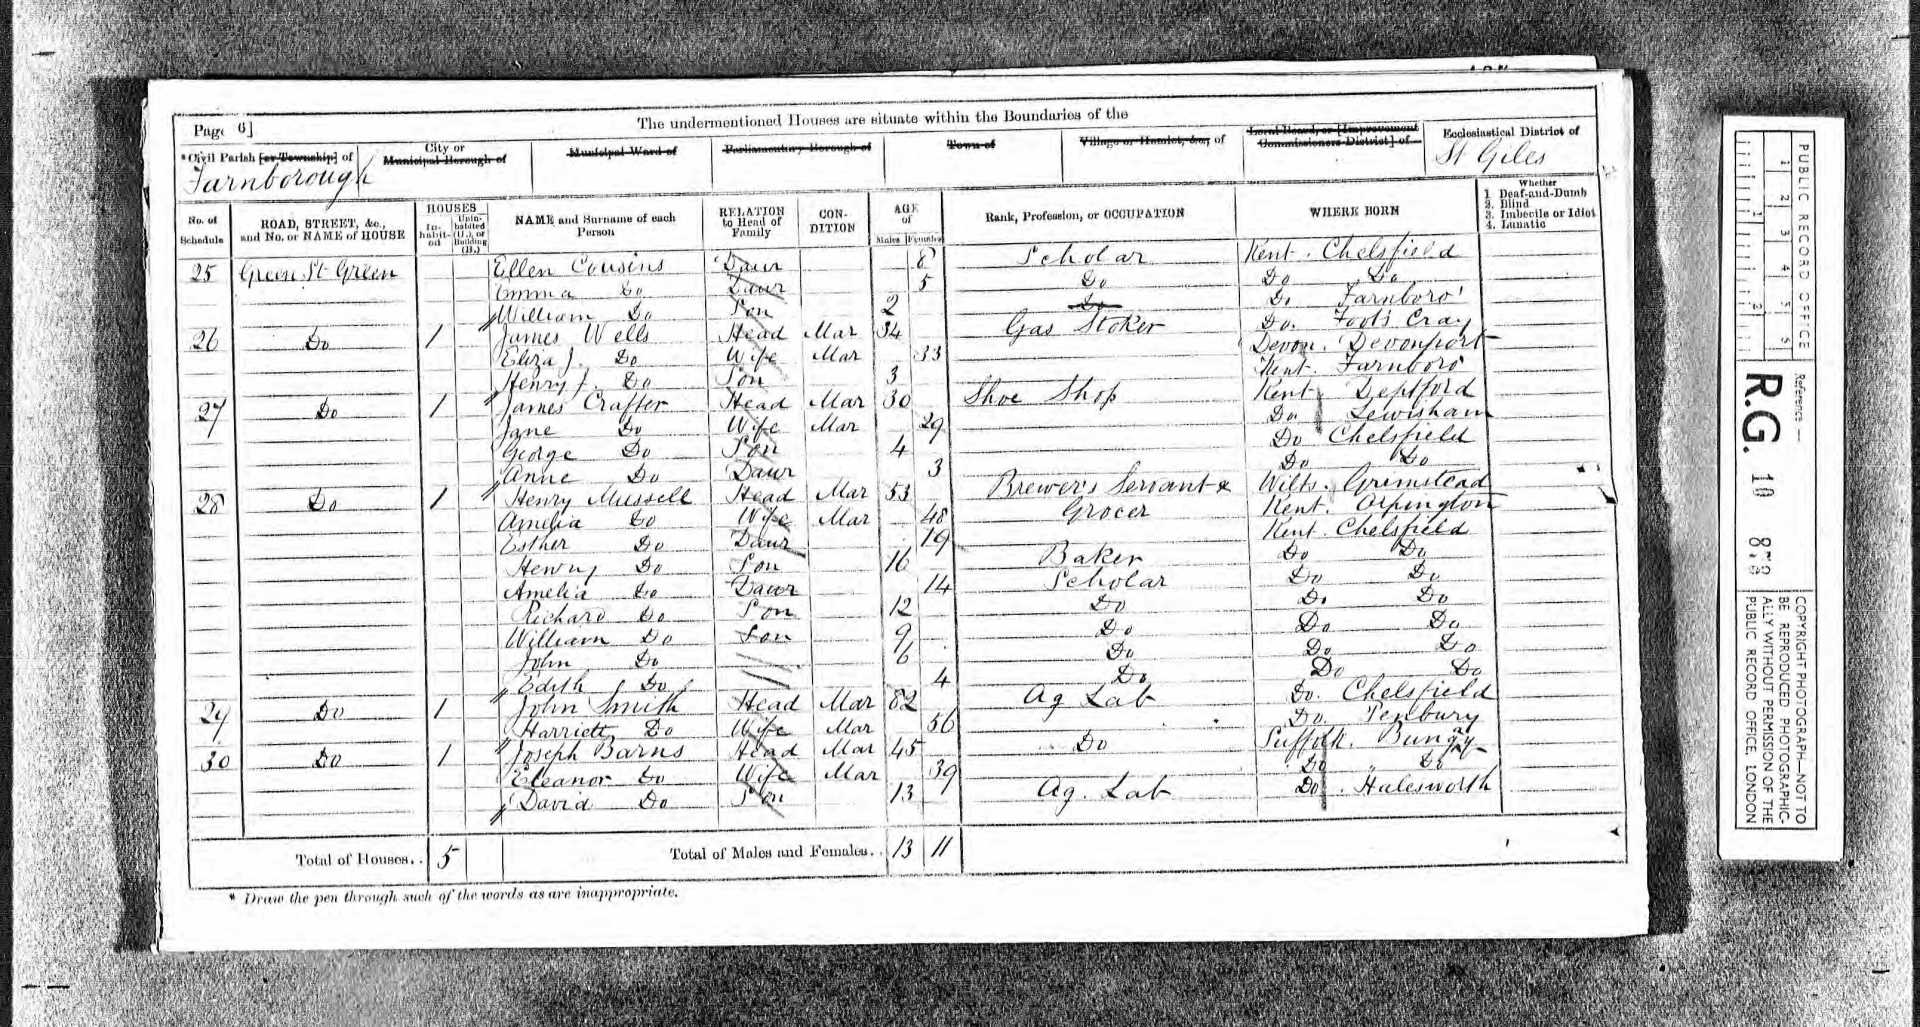 Page 6]
The undermentioned Houses are situate within the Boundaries of the
*Civil Parish [or Township] of
Farnborough
City or
Municipal Borough of
Municipal Ward of
Parliamentary Borough of
Town of
Village or Hamlet, &c., of
Local Board, or [Improvement
Commissioners District] of
Ecclesiastical District of
St Giles
No. of
Schedule
ROAD, STREET, &c.,
and No. or NAME of HOUSE
HOUSES
In-
habit-
ed
Unin-
habited
(U.), or
Building
(B.)
NAME and Surname of each
Person
RELATION
to Head of
Family
CON-
DITION
AGE
of
Males
Females
Rank, Profession, or OCCUPATION
WHERE BORN
Whether
1. Deaf-and-Dumb
2. Blind
3. Imbecile or Idiot
4. Lunatic
25 Green St Green Ellen Cousins Daur 8 Scholar Kent. Chelsfield
Emma Do Daur 5 Do Do Do
William Do Son 2 Do Do Farnboro'
26 Do 1 James Wells Head Mar 34 Gas Stoker Do. Foots Cray
Eliza J. Do Wife Mar 33 Devon. Devonport
Henry J. Do Son 3 Kent. Farnboro
27 Do 1 James Crafter Head Mar 30 Shoe Shop Kent Deptford
Jane Do Wife Mar 29 Do. Lewisham
George Do Son 4 Do Chelsfield
Anne Do Daur 3 Do Do
28 Do 1 Henry Mussell Head Mar 53 Brewer's Servant & Wilts. Grimstead
Amelia Do Wife Mar 48 Grocer Kent. Orpington
Esther Do Daur 19 Kent. Chelsfield
Henry Do Son 16 Baker Do Do
Amelia Do Daur 14 Scholar Do Do
Richard Do Son 12 Do Do Do
William Do Son 9 Do Do Do
John Do 6 Do Do Do
Edith Do 4 Do Do Do
29 Do 1 John Smith Head Mar 62 Ag Lab Do. Chelsfield
Harriett Do Wife Mar 56 Do. Penbury
30 Do 1 Joseph Barns Head Mar 45 Do Suffolk. Bungay
Eleanor Do Wife Mar 39 Do Do
David Do Son 13 Ag. Lab Do. Halesworth
Total of Houses.. 5 Total of Males and Females.. 13 11
* Draw the pen through such of the words as are inappropriate.
PUBLIC RECORD OFFICE
1 2 3 4 5
1 2
Reference :—
R.G. 10 873
COPYRIGHT PHOTOGRAPH—NOT TO
BE REPRODUCED PHOTOGRAPHIC-
ALLY WITHOUT PERMISSION OF THE
PUBLIC RECORD OFFICE, LONDON